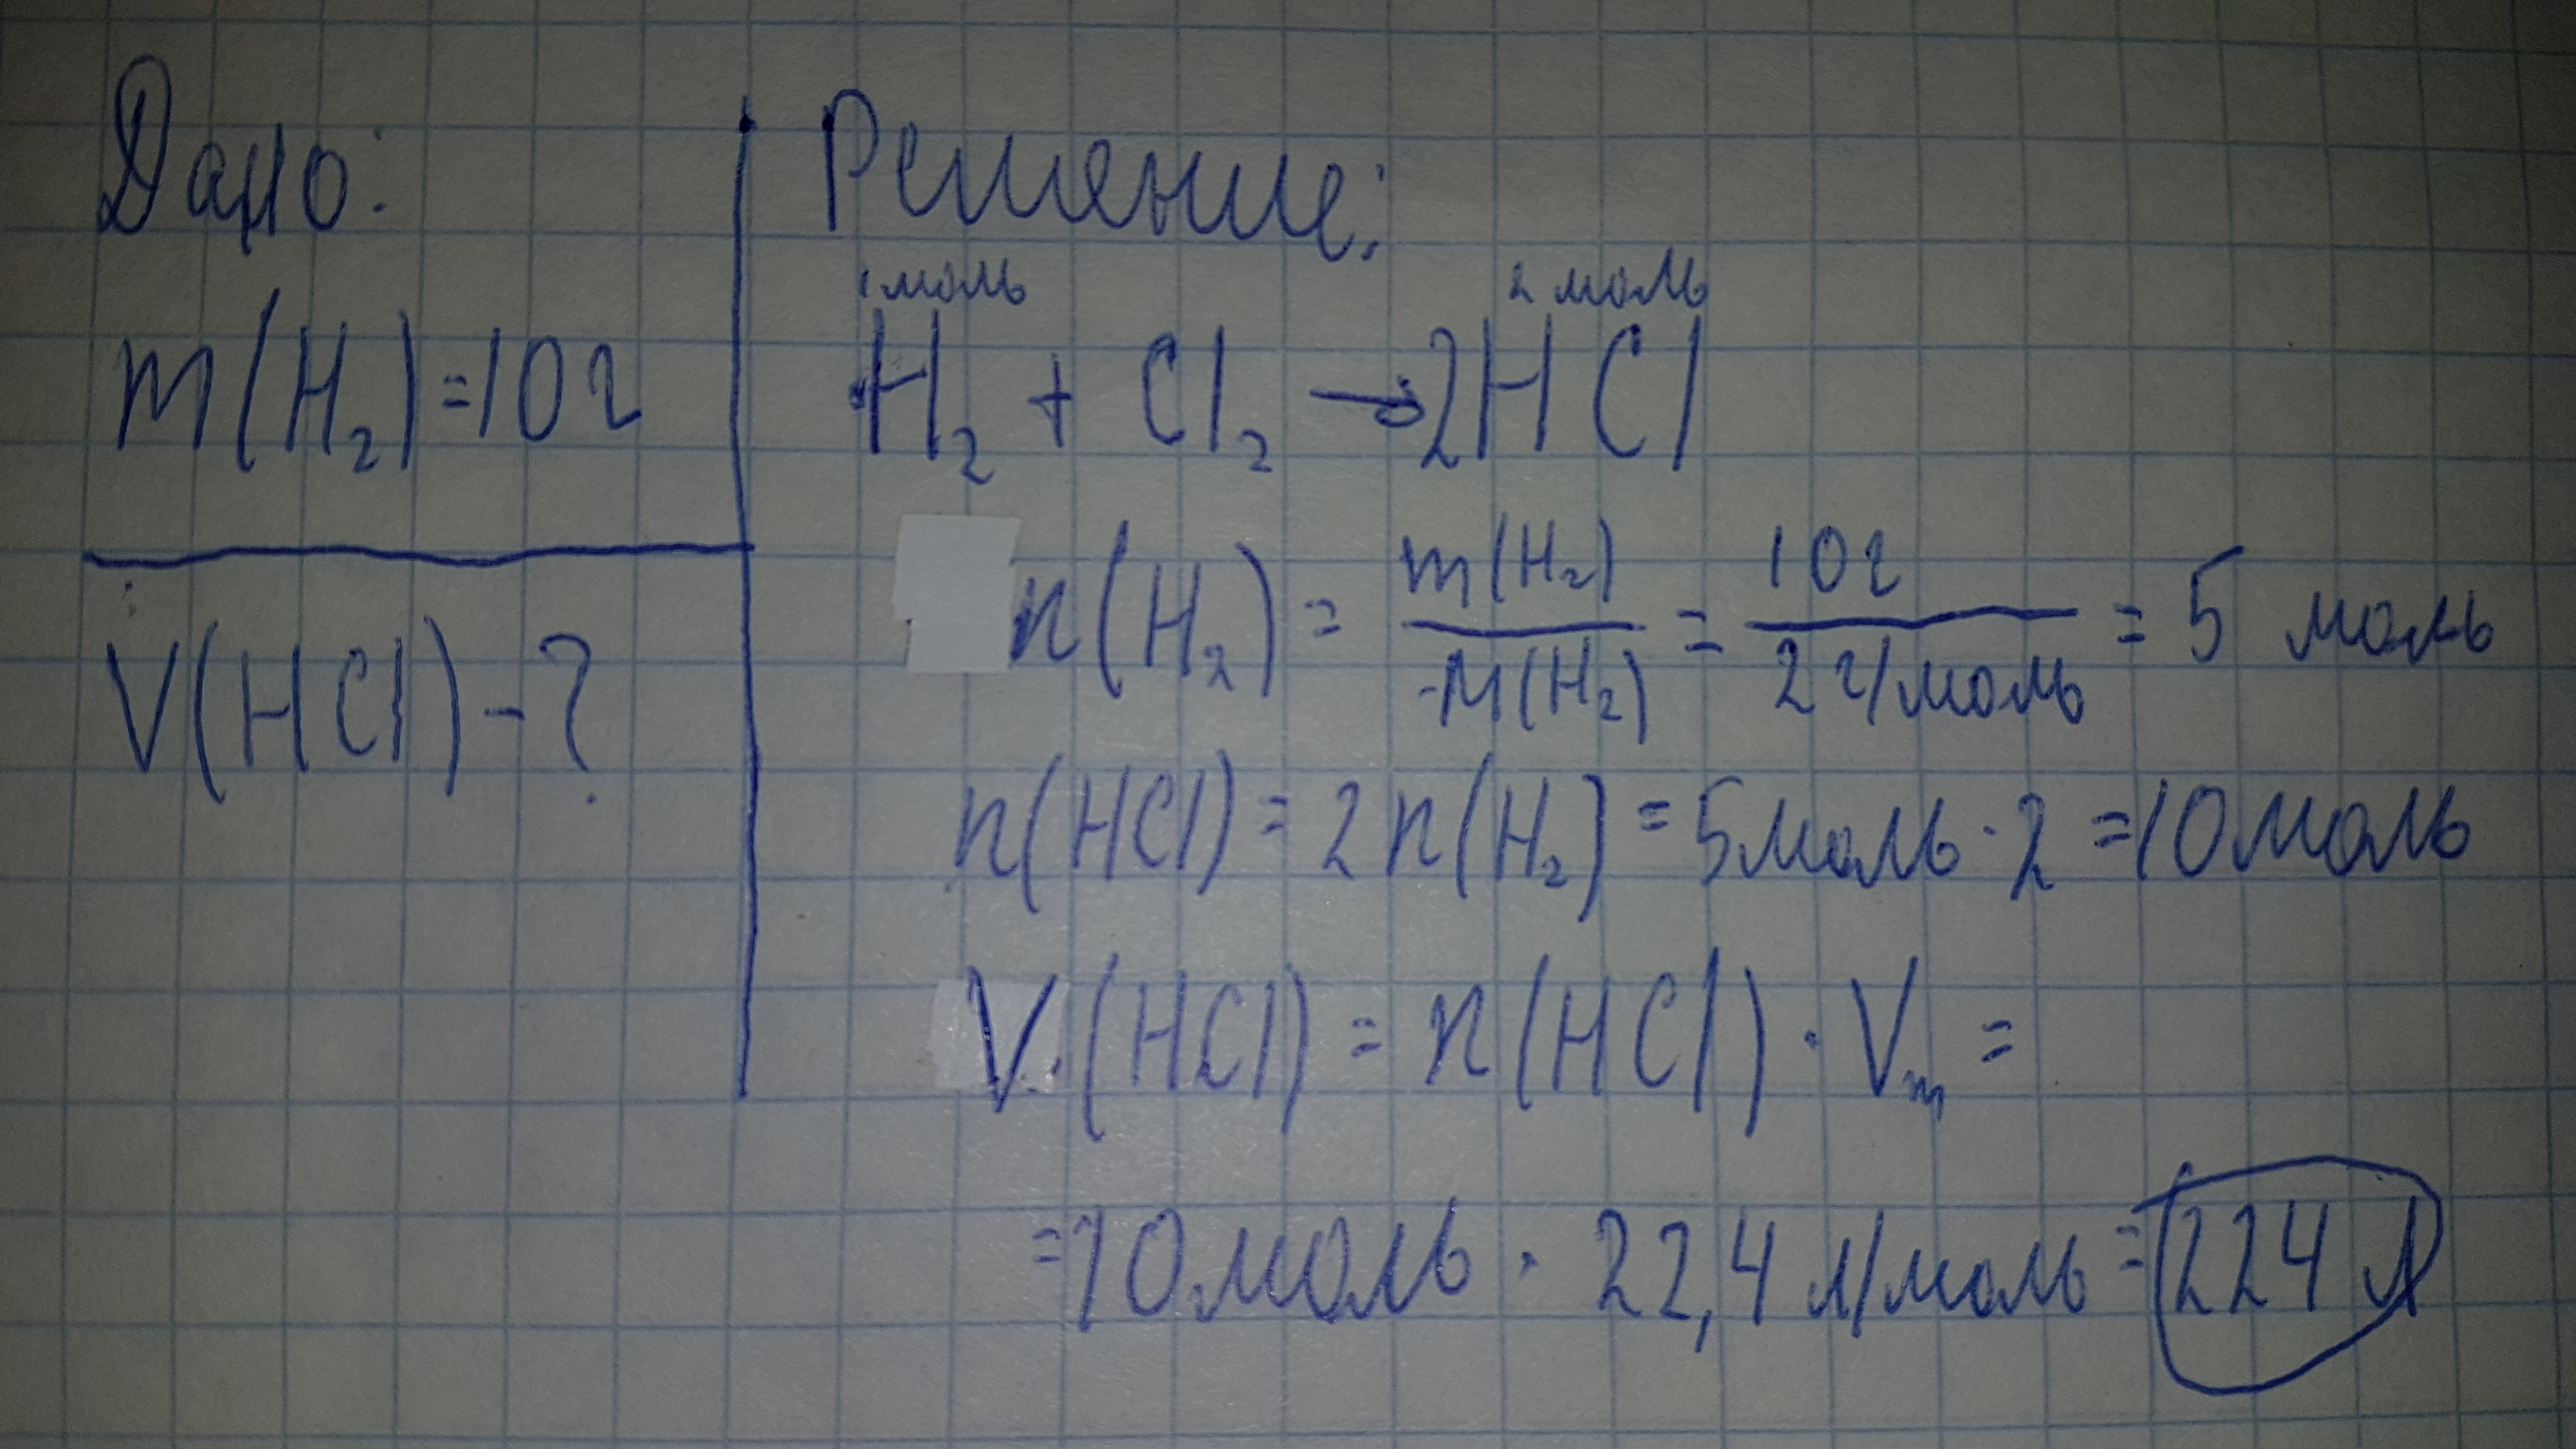 Дано:
m(H₂)=10г
V(HCl)-?
Решение:
1 моль 2 моль
H₂ + Cl₂ → 2HCl
n(H₂) = m(H₂)/M(H₂) = 10г/2 г/моль = 5 моль
n(HCl) = 2n(H₂) = 5моль·2 = 10моль
V(HCl) = n(HCl)·Vm =
=10моль · 22,4 л/моль = 224 л